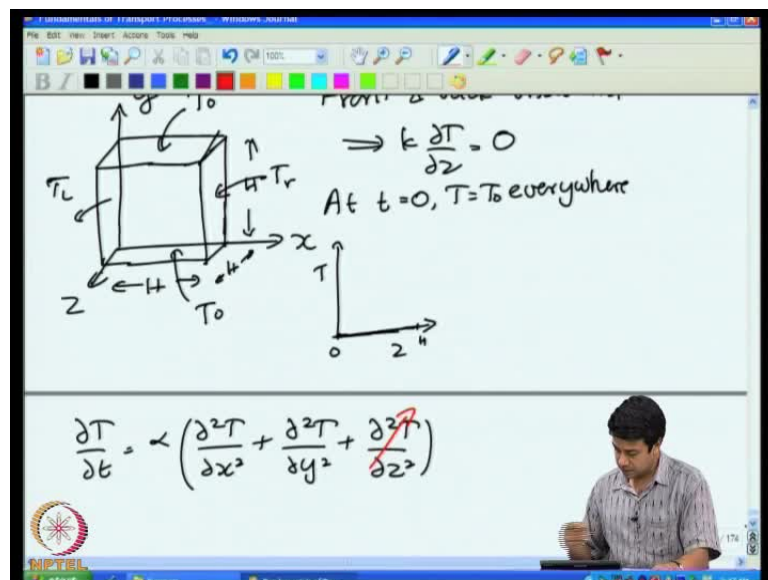 Fundamentals of Transport Processes_ - Windows Journal
File Edit View Insert Actions Tools Help
100%
B I
y T₀
⇒ k ∂T/∂z = 0
T_L
H T_r
At t=0, T=T₀ everywhere
x
H
H
z
T₀
T
0 z H
∂T/∂t = α (∂²T/∂x² + ∂²T/∂y² + ∂²T/∂z²)
/ 174
NPTEL
start